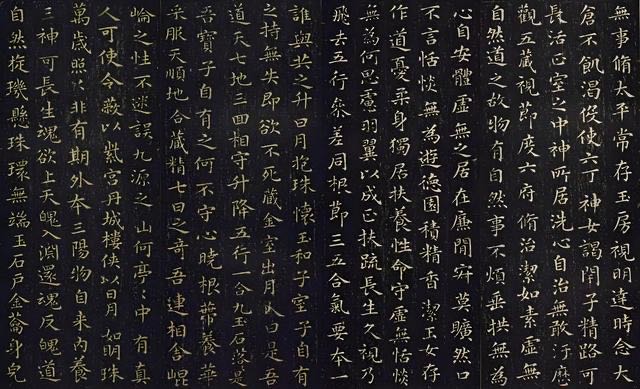 無事脩太平常存玉房視明達時念大
倉不飢渴役使六丁神女謁閉子精路可
長活正室之中神所居洗心自治無敢汙歷
觀五藏視節度六府脩治潔如素虛無
自然道之故物有自然事不煩垂拱無為
心自安體虛無之居在廉間寂莫曠然口
不言恬惔無為遊德園積精香潔玉女存
作道憂柔身獨居扶養性命守虛無恬惔
無為何思慮羽翼以成正扶疏長生久視乃
飛去五行參差同根節三五合氣要本一
誰與共之升日月抱珠懷玉和子室子自有
之持無失即欲不死藏金室出月入日是吾
道天七地三回相守升降五行一合九玉石落是
吾寶子自有之何不守心曉根蔕養華
采服天順地合藏精七日之奇吾連相合崐
崘之性不迷誤九源之山何亭〻中有真
人可使令蔽以紫宮丹城樓俠以日月如明珠
萬歲照〻非有期外本三陽物自來內養
三神可長生魂欲上天魄入淵還魂反魄道
自然旋璣懸珠環無端玉石戶金籥身皃